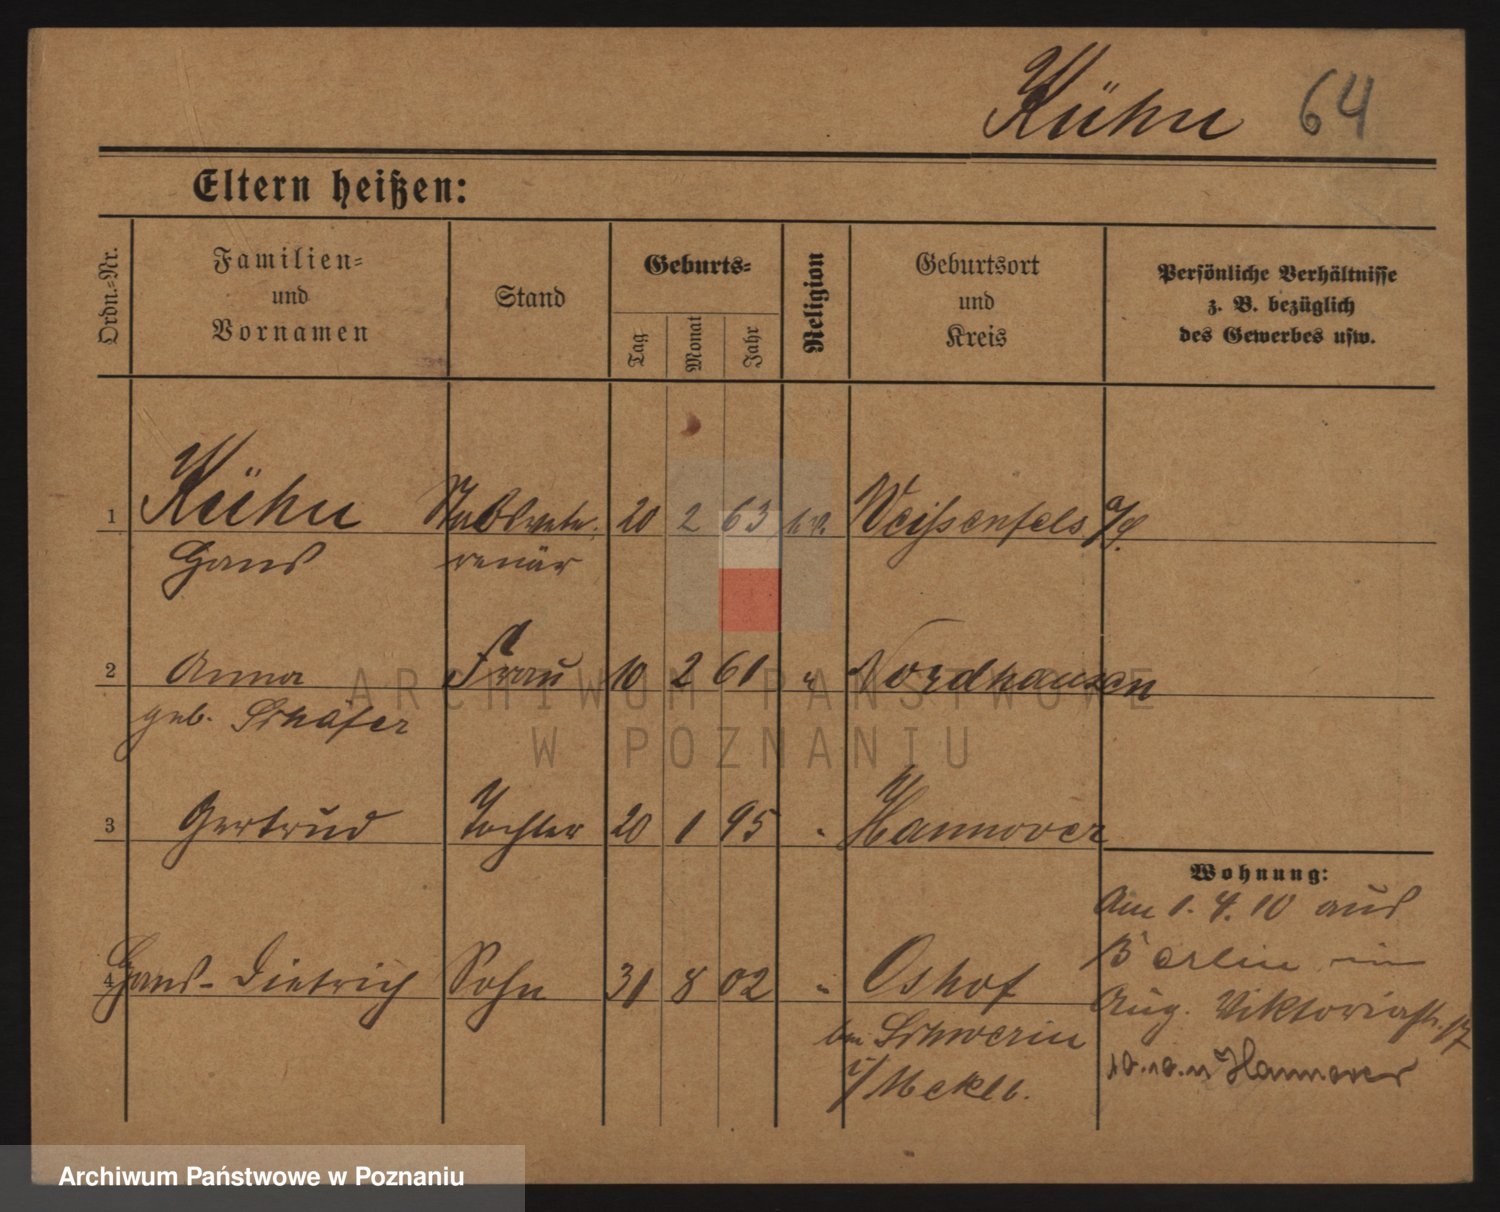 Kühn 64
Eltern heißen:
Ordn.-Nr.
Familien-
und
Vornamen
Stand
Geburts-
Tag
Monat
Jahr
Religion
Geburtsort
und
Kreis
Persönliche Verhältnisse
z. B. bezüglich
des Gewerbes usw.
1 Kühn Stabsvete- 20 2 63 ev. Weißenfels a/S.
Hans rinär
2 Anna Frau 10 2 61 " Nordhausen
geb. Schäfer
3 Gertrud Tochter 20 1 95 " Hannover
Wohnung:
Am 1. 4. 10 aus
Berlin in
Aug. Viktoriastr. 17
10.10.11 Hannover
4 Hans-Dietrich Sohn 31 8 02 " Oshof
bei Schwerin
i/Meklb.
ARCHIWUM PAŃSTWOWE
W POZNANIU
Archiwum Państwowe w Poznaniu